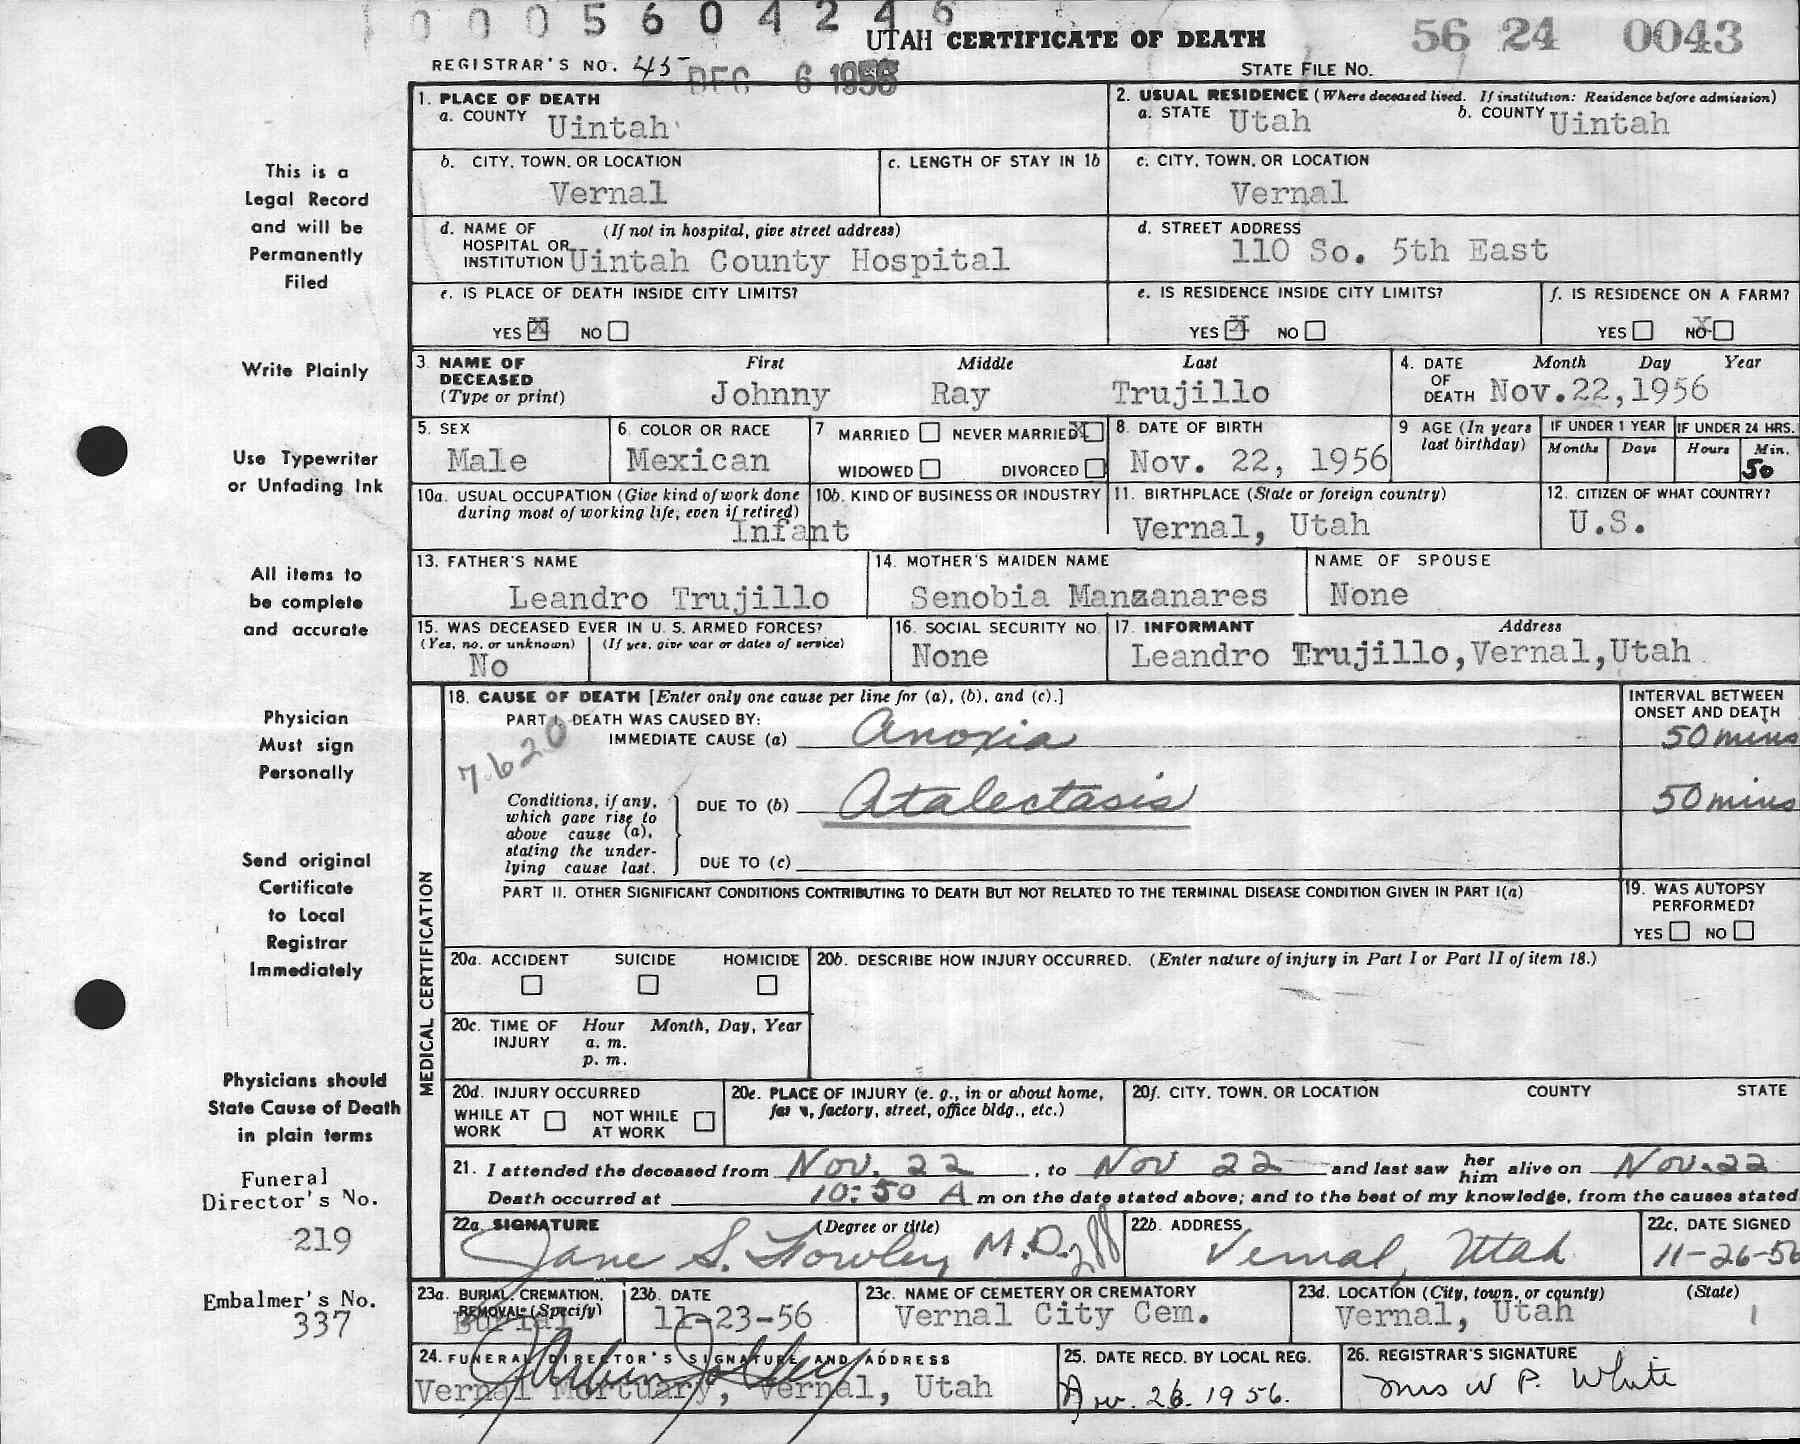 0 0 0 5 6 0 4 2 4 6
UTAH CERTIFICATE OF DEATH
56 24 0043
REGISTRAR'S NO. 45
DEC 6 1956
STATE FILE NO.
1. PLACE OF DEATH
a. COUNTY Uintah
2. USUAL RESIDENCE (Where deceased lived. If institution: Residence before admission)
a. STATE Utah b. COUNTY Uintah
b. CITY, TOWN, OR LOCATION
Vernal
c. LENGTH OF STAY IN 1b
c. CITY, TOWN, OR LOCATION
Vernal
d. NAME OF HOSPITAL OR INSTITUTION (If not in hospital, give street address)
Uintah County Hospital
d. STREET ADDRESS
110 So. 5th East
e. IS PLACE OF DEATH INSIDE CITY LIMITS?
YES X NO
e. IS RESIDENCE INSIDE CITY LIMITS?
YES X NO
f. IS RESIDENCE ON A FARM?
YES NO X
3 NAME OF DECEASED (Type or print)
First Middle Last
Johnny Ray Trujillo
4. DATE OF DEATH Month Day Year
Nov.22,1956
5. SEX
Male
6. COLOR OR RACE
Mexican
7 MARRIED NEVER MARRIED X
WIDOWED DIVORCED
8. DATE OF BIRTH
Nov. 22, 1956
9 AGE (In years last birthday)
IF UNDER 1 YEAR
Months Days
IF UNDER 24 HRS.
Hours Min.
50
10a. USUAL OCCUPATION (Give kind of work done during most of working life, even if retired)
Infant
10b. KIND OF BUSINESS OR INDUSTRY
11. BIRTHPLACE (State or foreign country)
Vernal, Utah
12. CITIZEN OF WHAT COUNTRY?
U.S.
13. FATHER'S NAME
Leandro Trujillo
14. MOTHER'S MAIDEN NAME
Senobia Manzanares
NAME OF SPOUSE
None
15. WAS DECEASED EVER IN U. S. ARMED FORCES?
(Yes, no, or unknown) (If yes, give war or dates of service)
No
16. SOCIAL SECURITY NO.
None
17. INFORMANT Address
Leandro Trujillo,Vernal,Utah
MEDICAL CERTIFICATION
18. CAUSE OF DEATH [Enter only one cause per line for (a), (b), and (c).]
INTERVAL BETWEEN ONSET AND DEATH
PART I. DEATH WAS CAUSED BY:
IMMEDIATE CAUSE (a) Anoxia 50 mins
7620
Conditions, if any, which gave rise to above cause (a), stating the underlying cause last.
DUE TO (b) Atalectasis 50 mins
DUE TO (c)
PART II. OTHER SIGNIFICANT CONDITIONS CONTRIBUTING TO DEATH BUT NOT RELATED TO THE TERMINAL DISEASE CONDITION GIVEN IN PART I(a)
19. WAS AUTOPSY PERFORMED?
YES NO
20a. ACCIDENT SUICIDE HOMICIDE
20b. DESCRIBE HOW INJURY OCCURRED. (Enter nature of injury in Part I or Part II of item 18.)
20c. TIME OF INJURY Hour Month, Day, Year
a. m.
p. m.
20d. INJURY OCCURRED
WHILE AT WORK NOT WHILE AT WORK
20e. PLACE OF INJURY (e. g., in or about home, farm, factory, street, office bldg., etc.)
20f. CITY, TOWN, OR LOCATION COUNTY STATE
21. I attended the deceased from Nov. 22, to Nov 22 and last saw her him alive on Nov. 22
Death occurred at 10:50 A m on the date stated above; and to the best of my knowledge, from the causes stated
22a. SIGNATURE (Degree or title)
Jane S. Fowley M.D.
22b. ADDRESS
Vernal, Utah
22c. DATE SIGNED
11-26-56
23a. BURIAL, CREMATION, REMOVAL (Specify)
Burial
23b. DATE
11-23-56
23c. NAME OF CEMETERY OR CREMATORY
Vernal City Cem.
23d. LOCATION (City, town, or county) (State)
Vernal, Utah
24. FUNERAL DIRECTOR'S SIGNATURE AND ADDRESS
Vernal Mortuary, Vernal, Utah
25. DATE RECD. BY LOCAL REG.
Nov. 26. 1956.
26. REGISTRAR'S SIGNATURE
Mrs W P. White
This is a
Legal Record
and will be
Permanently
Filed
Write Plainly
Use Typewriter
or Unfading Ink
All items to
be complete
and accurate
Physician
Must sign
Personally
Send original
Certificate
to Local
Registrar
Immediately
Physicians should
State Cause of Death
in plain terms
Funeral
Director's No.
219
Embalmer's No.
337